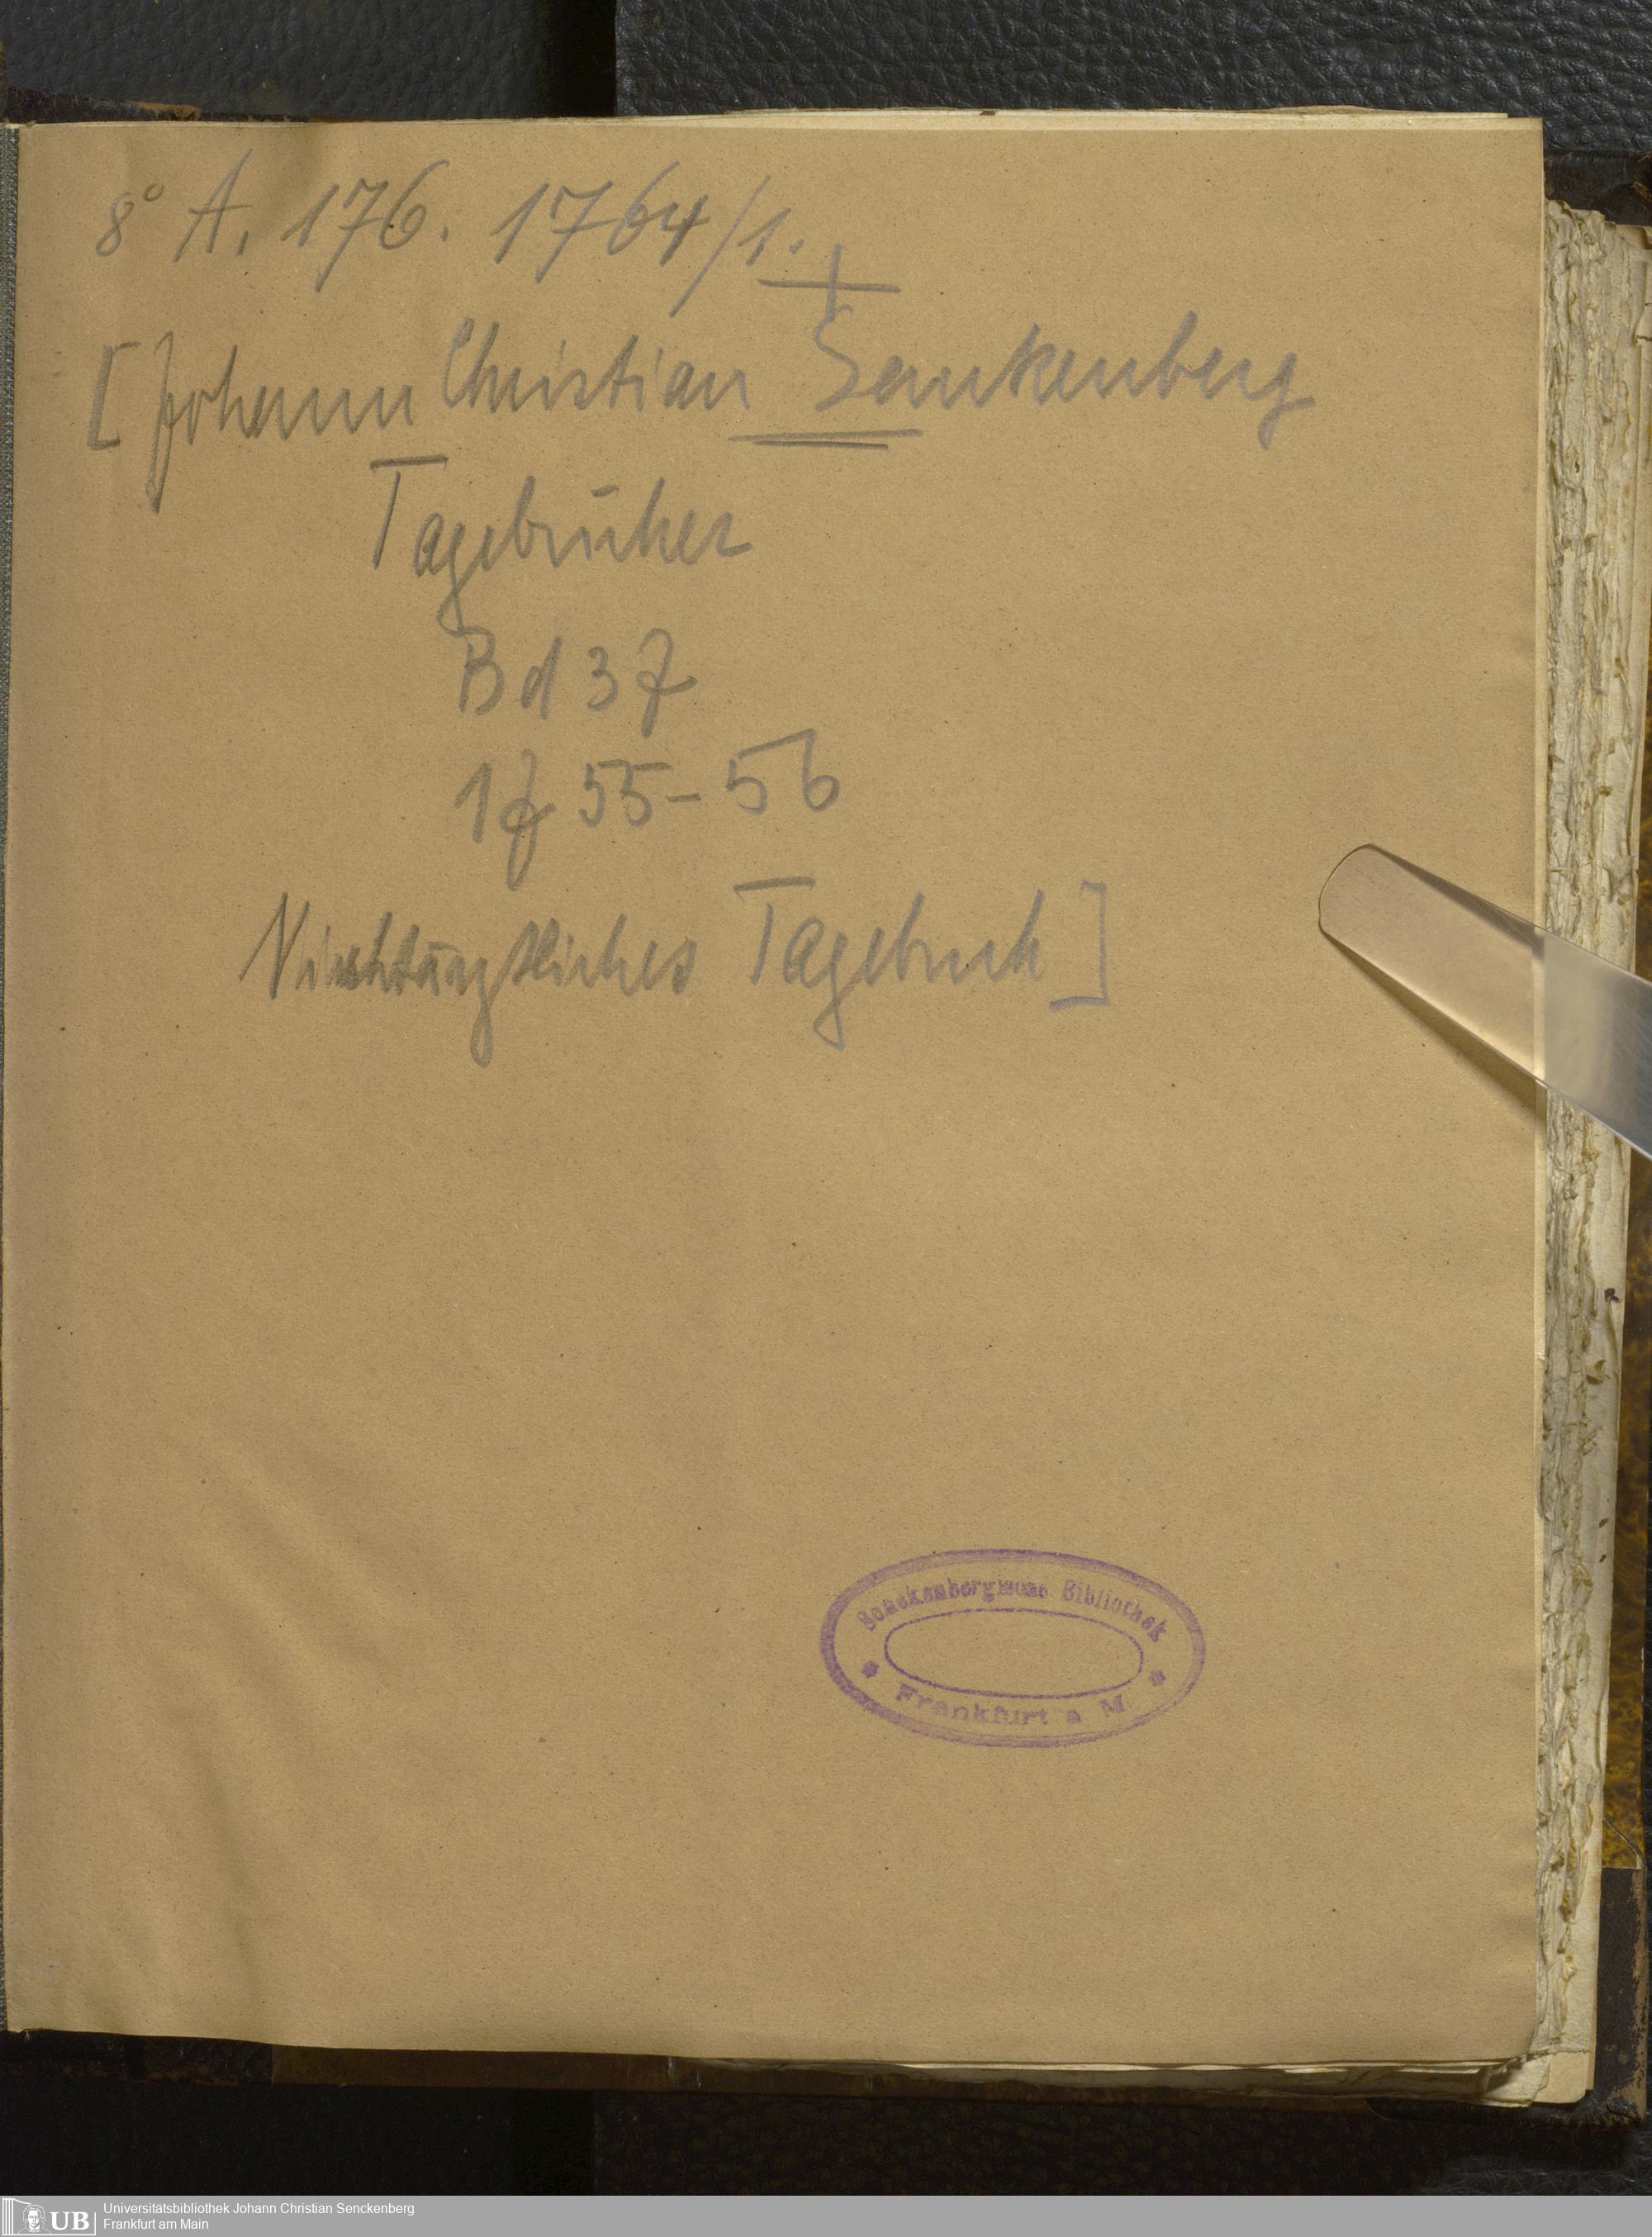 8° A. 176. 1764/1.
[Johann Christian Senckenberg
Tagebücher
Bd 37
1755-56
Tagebuch]
Senckenbergische Bibliothek
Frankfurt a M.
UB
Universitätsbibliothek Johann Christian Senckenberg
Frankfurt am Main